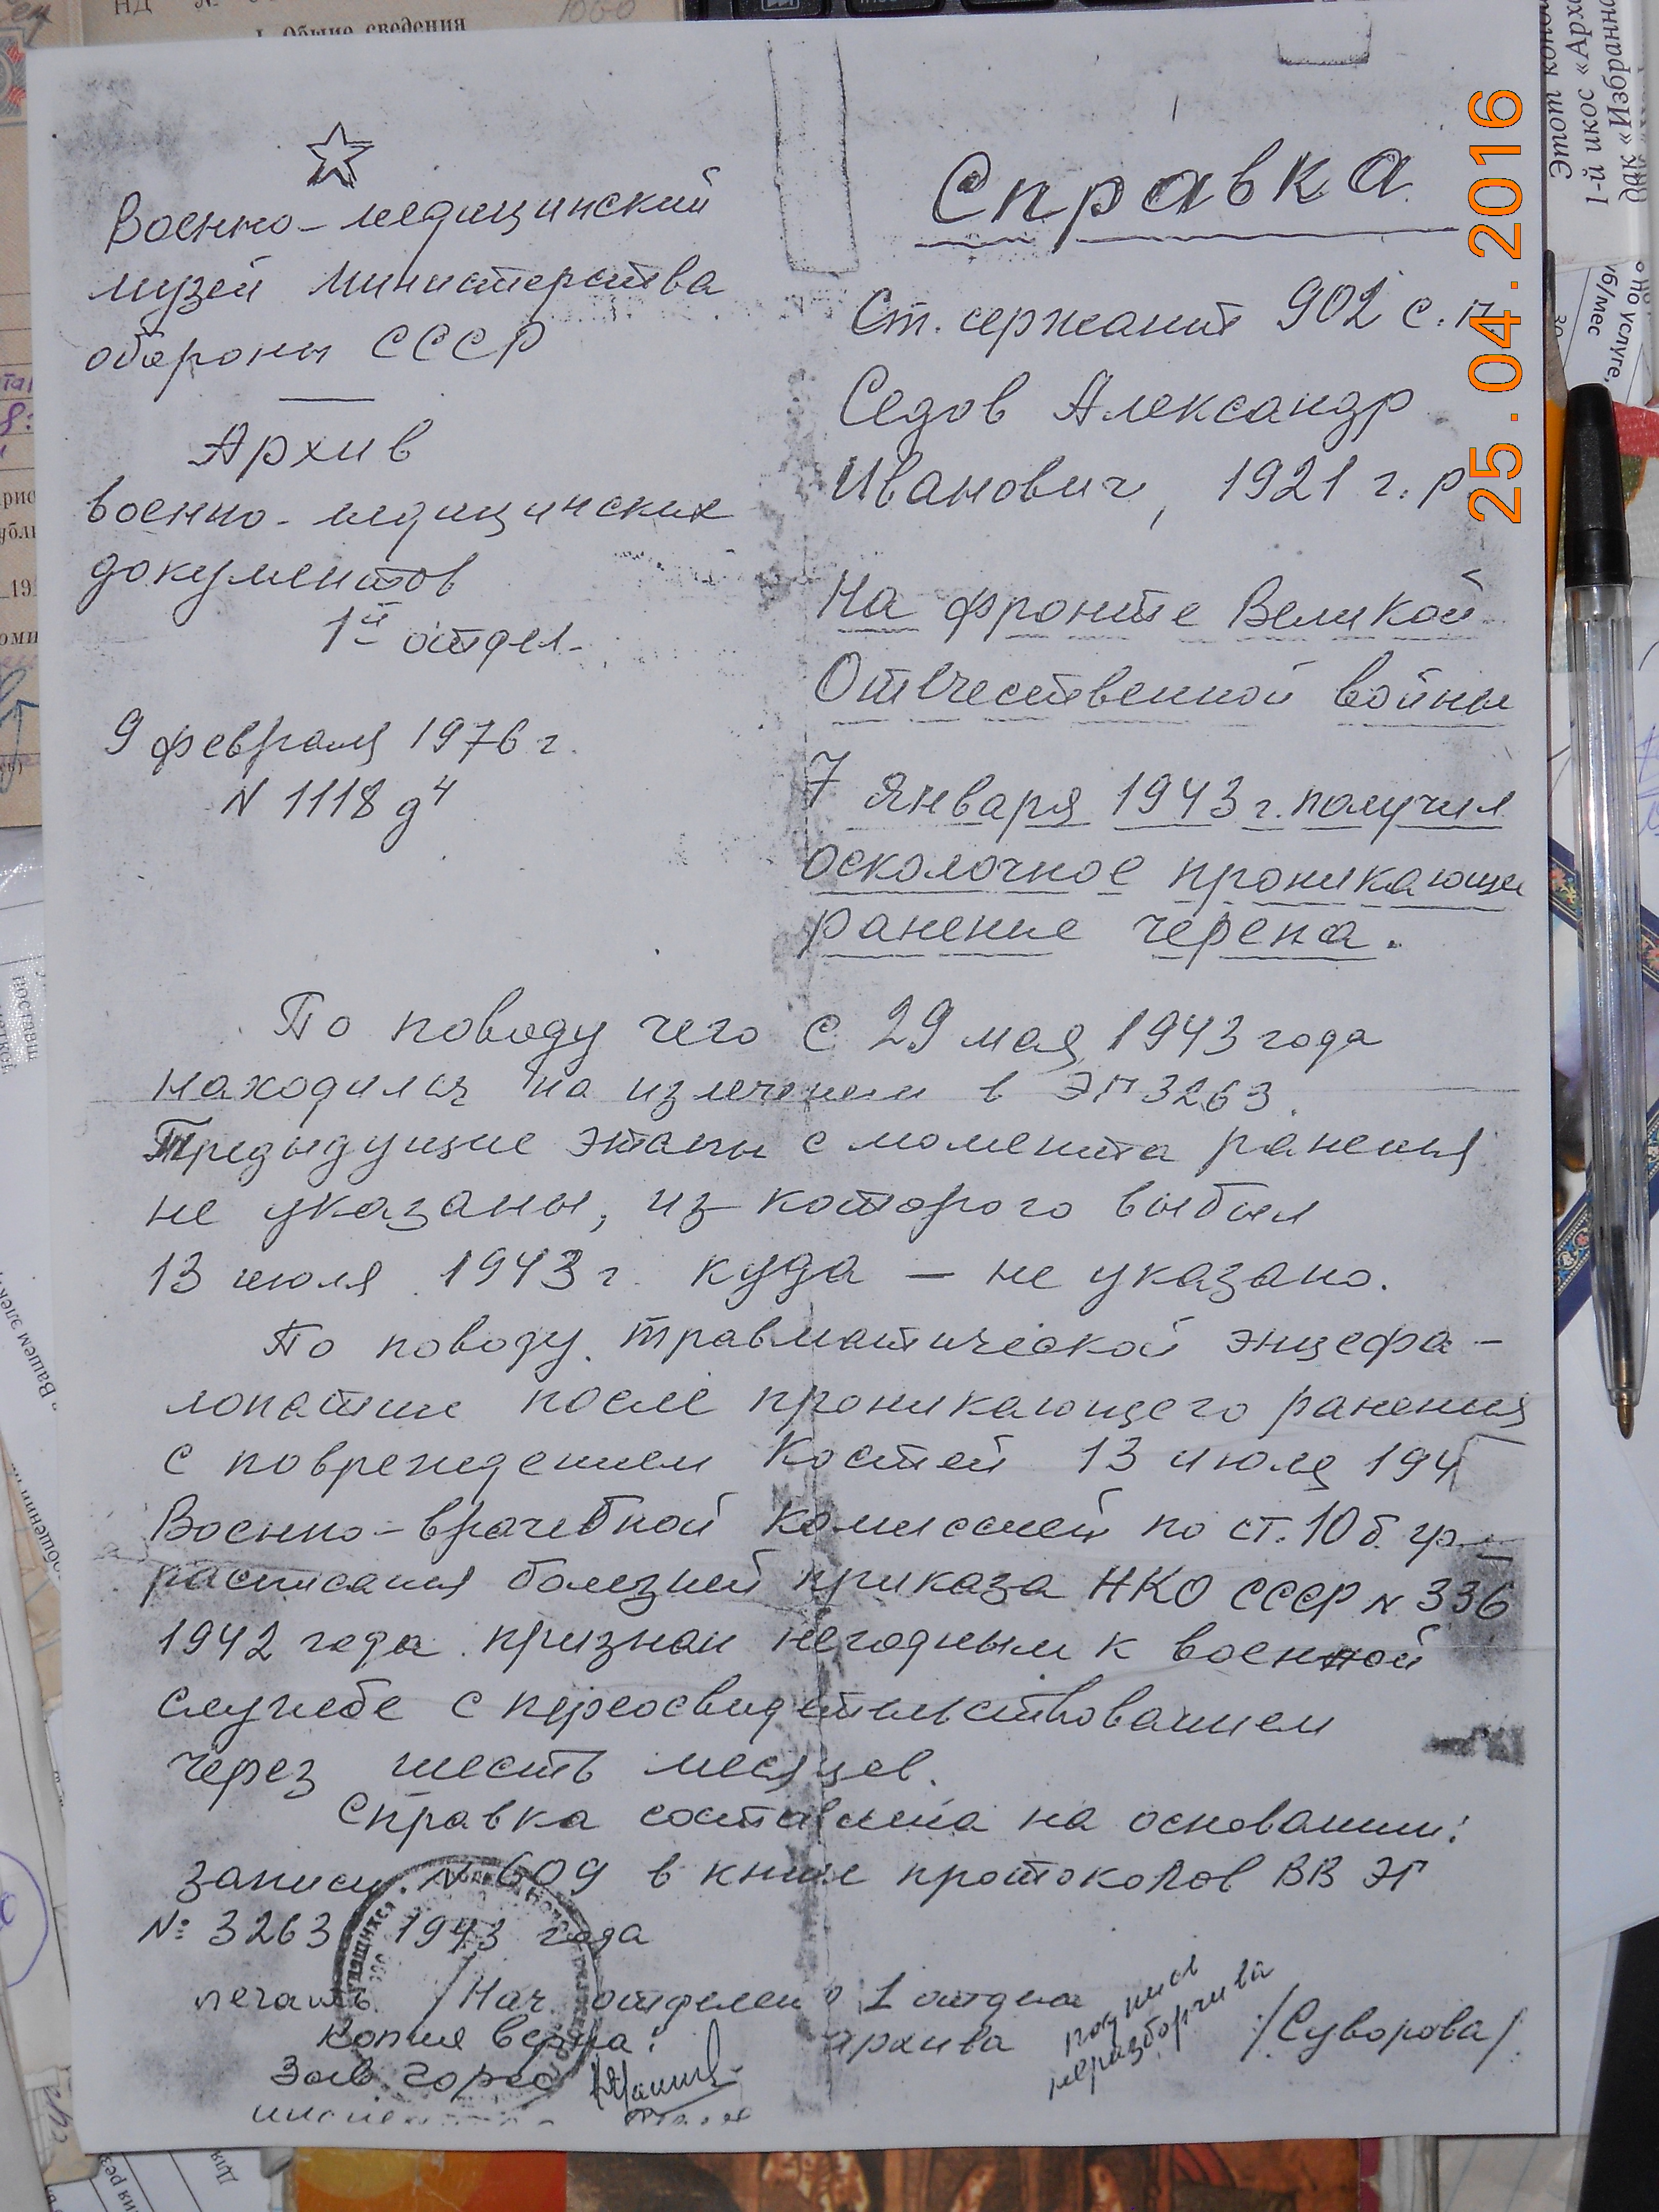 Военно-медицинский
музей Министерства
обороны СССР
Архив
военно-медицинских
документов
1й отдел
9 февраля 1976 г.
N 1118 д4
Справка
Ст. сержант 902 с.п
Седов Александр
Иванович, 1921 г. р
На фронте Великой
Отечественной войны
7 января 1943 г. получил
осколочное проникающе
ранение черепа.
По поводу чего с 29 мая 1943 года
находился на излечении в ЭГ 3263.
Предыдущие этапы с момента ранения
не указаны, из которого выбыл
13 июля 1943 г. куда — не указано.
По поводу травматической энцефа-
лопатии после проникающего ранения
с повреждением костей 13 июля 194
Военно-врачебной комиссией по ст. 10 б. гр
расписания болезней приказа НКО СССР N 336
1942 года признан негодным к военной
службе с переосвидетельствованием
через шесть месяцев.
Справка составлена на основании:
записи N 609 в книге протоколов ВВ ЭГ
№: 3263 1943 года
печать. /Нач. отделен 1 отдела
архива подпись неразборчива /Суворова/
Копия верна:
Зав. горсо
25.04.2016
I. Общие сведения
1-й икос «Арх
дак «Избранна
по услуге,
уб/мес